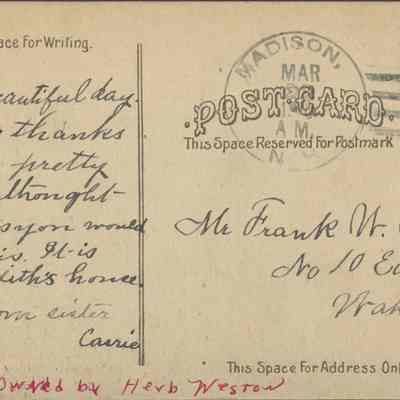 ace For Writing.
eautiful day.
thanks
pretty
thought
you would
is. It is
dith's house.
own sister
Carrie
MADISON,
MAR
A.M.
N
POST CARD.
This Space Reserved For Postmark
Mr Frank W.
No 10 Ea
Wak
This Space For Address Onl
Owned by Herb Weston